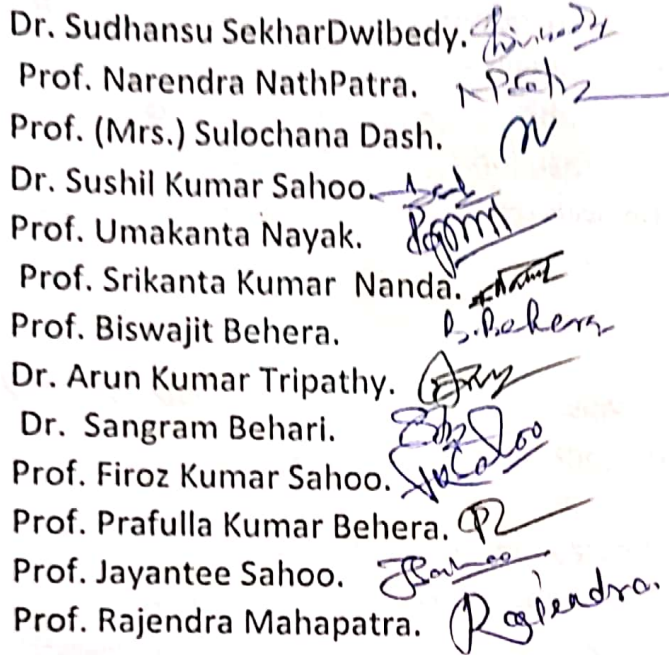 Dr. Sudhansu SekharDwibedy.
Prof. Narendra NathPatra.
Prof. (Mrs.) Sulochana Dash.
Dr. Sushil Kumar Sahoo.
Prof. Umakanta Nayak.
Prof. Srikanta Kumar Nanda.
Prof. Biswajit Behera. B.Behera
Dr. Arun Kumar Tripathy.
Dr. Sangram Behari.
Prof. Firoz Kumar Sahoo.
Prof. Prafulla Kumar Behera.
Prof. Jayantee Sahoo. JSahoo
Prof. Rajendra Mahapatra. Rajendra.